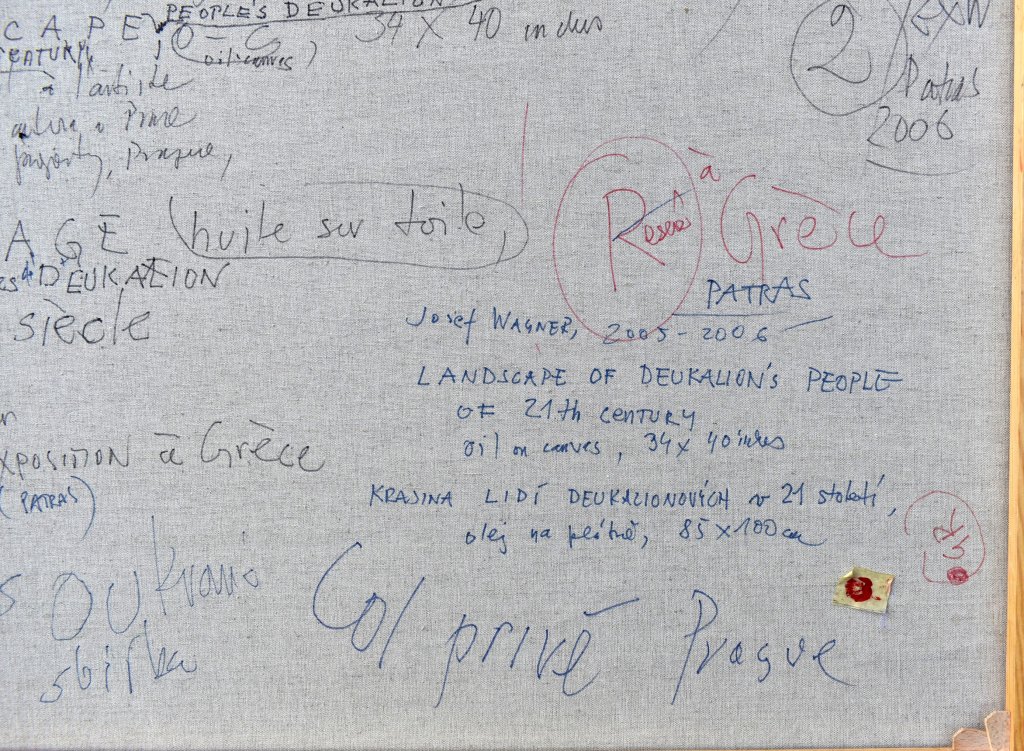 PEOPLE'S DEUKALION
CAPE, 34 X 40 inches
CENTURY,
à l'artiste
Prague,
2
EXW
Patras
2006
AGE huile sur toile,
DEUKALION
siècle
Reservé à Grèce
PATRAS
Josef WAGNER, 2005-2006
LANDSCAPE OF DEUKALION'S PEOPLE
OF 21th CENTURY
oil on canves, 34 x 40 inches
XPOSITION à Grèce
(PATRAS)
KRAJINA LIDÍ DEUKALIONOVÝCH v 21 století,
olej na plátně, 85 x 100 cm
SOUkromá
sbírka
Col privé Prague